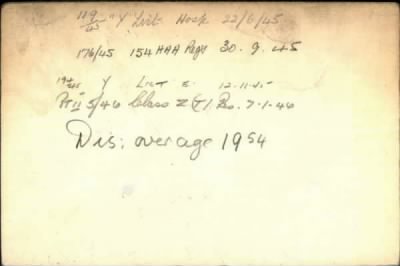 119/45 "Y" List Hosp 22/6/45
176/45 154 HAA Regt 30.9.45
194/45 Y List 12-11-45
Pt II 5/46 Class Z (T) Res. 7-1-46
Dis: over age 1954